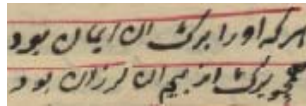 هر که او را برگ آن ایمان بود
همچو برگ از بیم آن لرزان بود